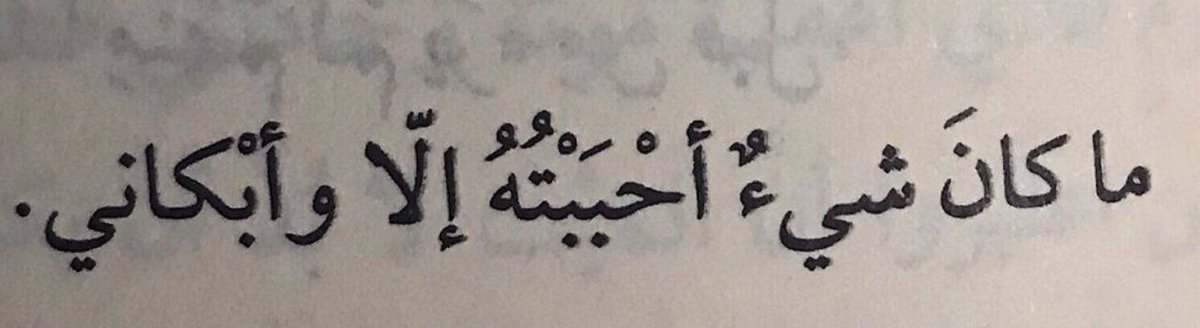 ما كانَ شيءٌ أحْبَبْتُهُ إلّا وأبْكاني.